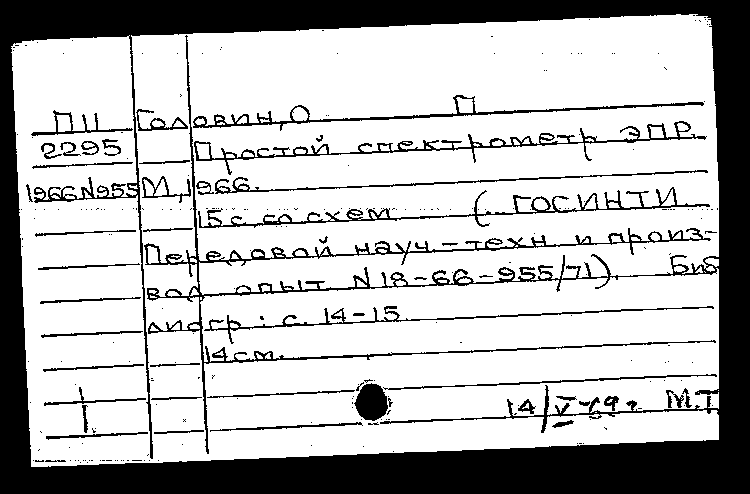 ПII Головин, О П
2295 Простой спектрометр ЭПР.
1966 N955 М, 1966.
15 с. со схем (ГОСИНТИ.
Передовой науч.-техн и произ-
вод опыт N 18-66-955/71). Биб
лиогр: с. 14-15
14 см.
14/V М.Т